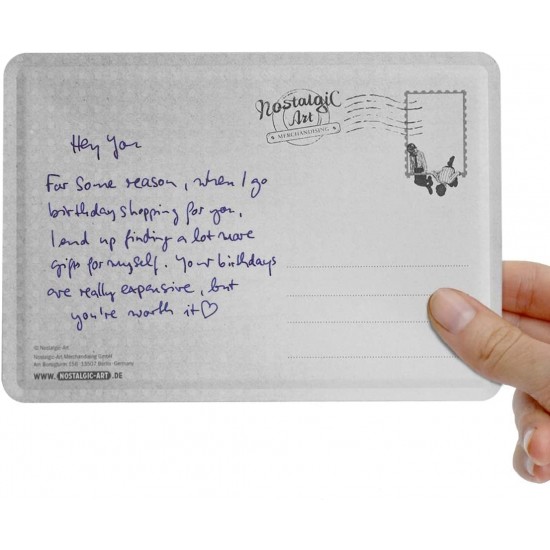 Nostalgic
Art
MERCHANDISING
Hey You
For some reason, when I go
birthday shopping for you,
I end up finding a lot more
gifts for myself. Your birthdays
are really expensive, but
you're worth it♡
© Nostalgic-Art
Nostalgic-Art Merchandising GmbH
WWW.NOSTALGIC-ART.DE